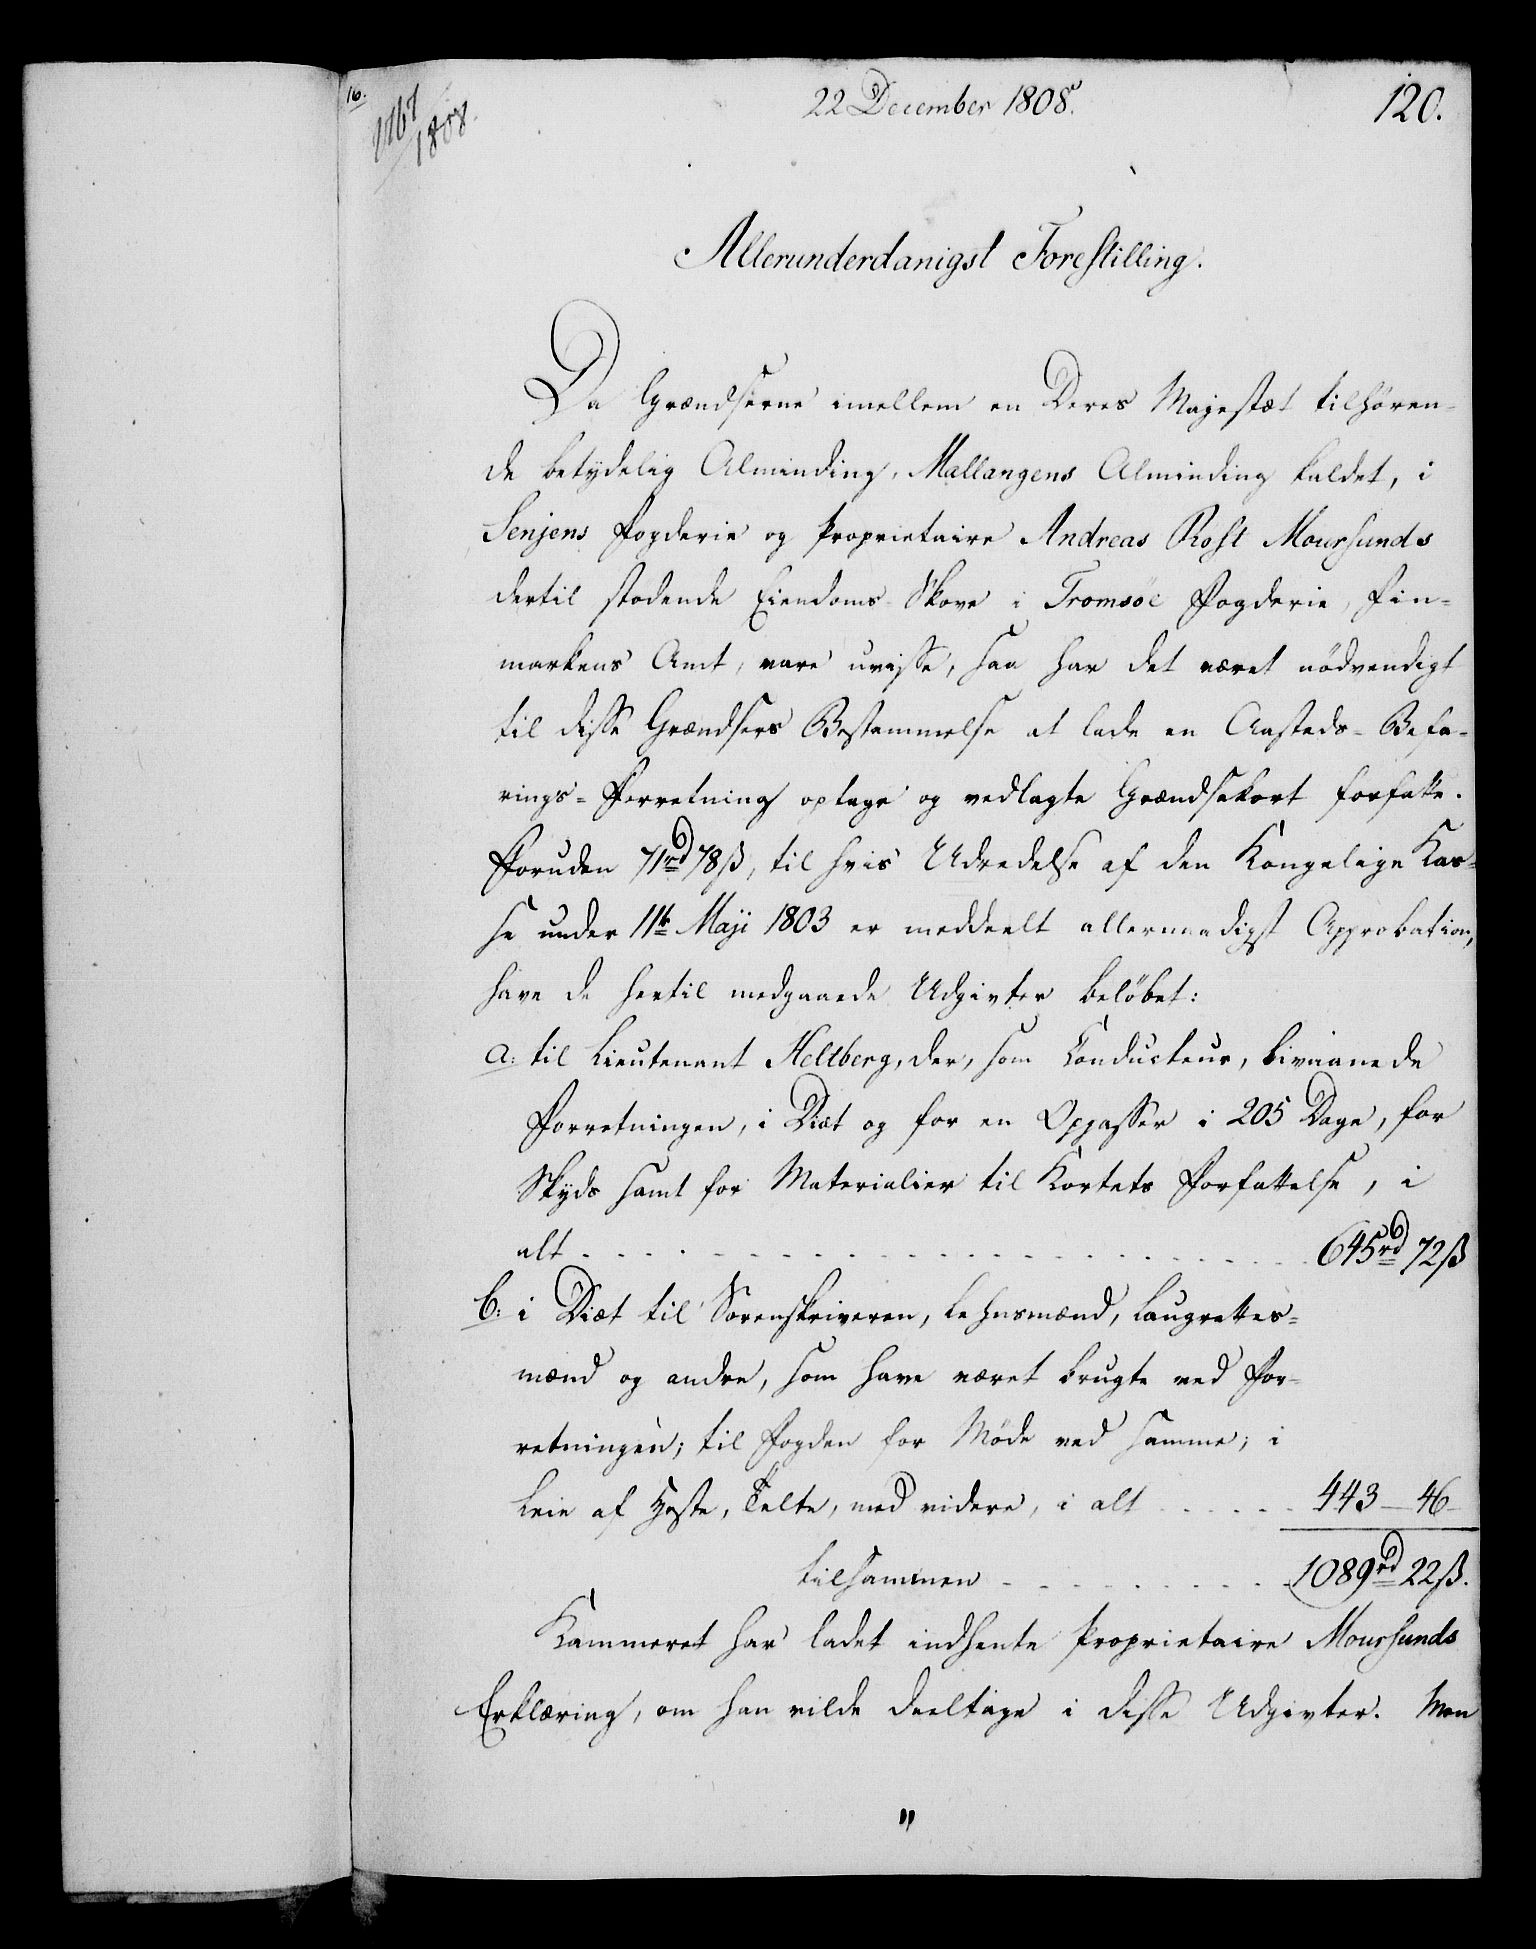 16.
1167
1808.
22 December 1808.
120.
Allerunderdanigst Forestilling.
Da Grændserne imellem en Deres Majestæt tilhøren-
de betydelig Alminding, Mallangens Alminding kaldet, i
Senjens Fogderie og Proprietaire Andreas Rost Moursunds
dertil stødende Eiendoms-Skove i Tromsøe Fogderie, Fin-
markens Amt, vare uvisse, saa har det været nødvendigt
til disse Grændsers Bestemmelse at lade en Aasteds-Befa-
rings-Forretning optage og vedlagte Grændsekort forfatte.
Foruden 71rd 78ß, til hvis Udredelse af den Kongelige Kas-
se under 11te Maji 1803 er meddeelt allernaadigst Approbation,
have de hertil medgaaede Udgivter beløbet:
a. til Lieutenant Heltberg, der, som Conducteur, bivaanede
Forretningen, i Diæt og for en Opasser i 205 Dage, for
Skyds samt for Materialier til Kortets Forfattelse, i
alt - - - - - - - - 645rd 72ß
b. i Diæt til Sorenskriveren, Lehnsmænd, Laugrettes-
mænd og andre, som have været brugte ved For-
retningen; til Fogden for Møde ved samme; i
Leie af Heste, Telte, med videre, i alt - - - - 443 - 46 -
tilsammen - - - - - - 1089rd 22ß.
Kammeret har ladet indhente Proprietaire Moursunds
Erklæring, om han vilde deeltage i disse Udgivter. Men